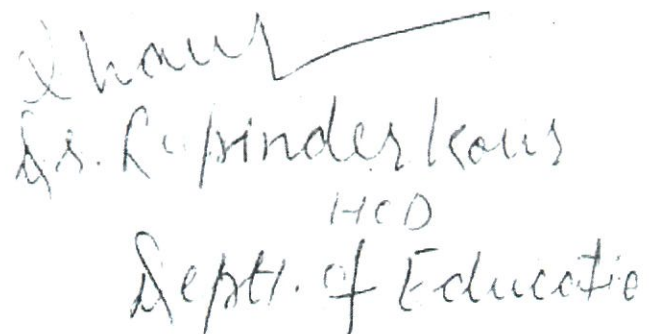 Dr. Rupinder Kaur
HOD
Deptt. of Educatio